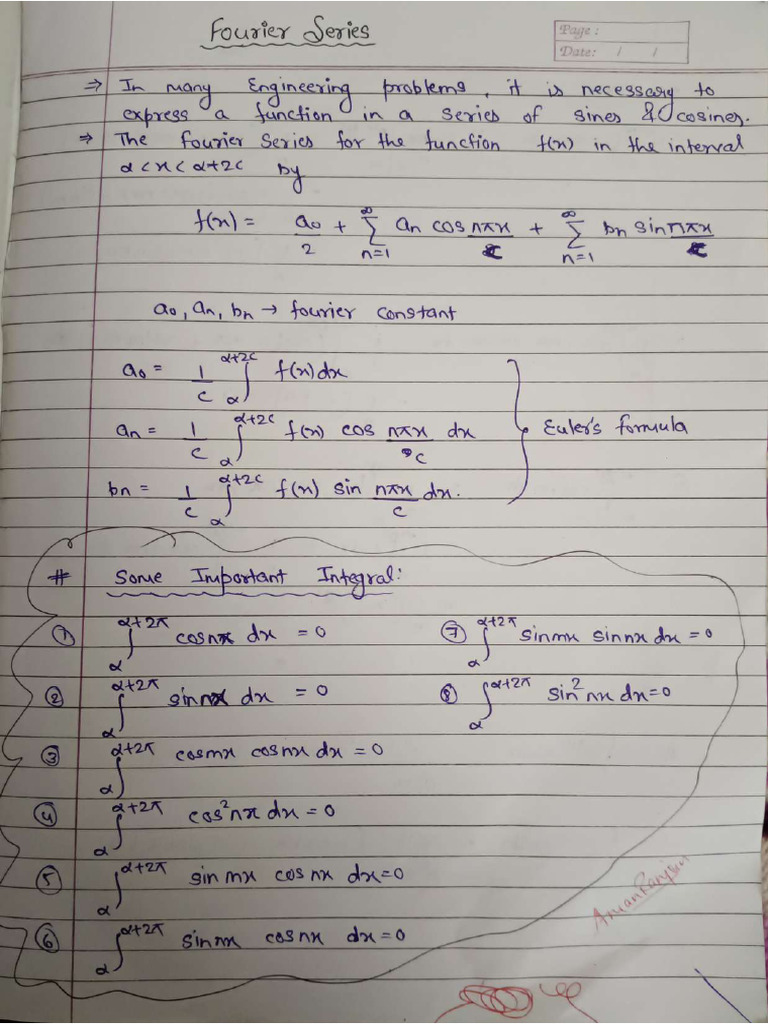 Fourier Series
Page :
Date: / /
⇒ In many Engineering problems, it is necessary to
express a function in a series of sines & cosines.
⇒ The fourier Series for the function f(x) in the interval
α<x<α+2c by
f(x) = a₀/2 + ∞Σn=1 an cos nπx/c + ∞Σn=1 bn sin nπx/c
a₀, an, bn → fourier constant
a₀ = 1/c ∫α^α+2c f(x) dx
an = 1/c ∫α^α+2c f(x) cos nπx/c dx Euler's formula
bn = 1/c ∫α^α+2c f(x) sin nπx/c dx.
# Some Important Integral:
① ∫α^α+2π cosnx dx = 0 ⑦ ∫α^α+2π sinmx sinnx dx = 0
② ∫α^α+2π sinnx dx = 0 ⑧ ∫α^α+2π sin²nx dx=0
③ ∫α^α+2π cosmx cosmx dx = 0
④ ∫α^α+2π cos²nx dx = 0
⑤ ∫α^α+2π sin mx cosnx dx=0
⑥ ∫α^α+2π sinnx cosnx dx=0